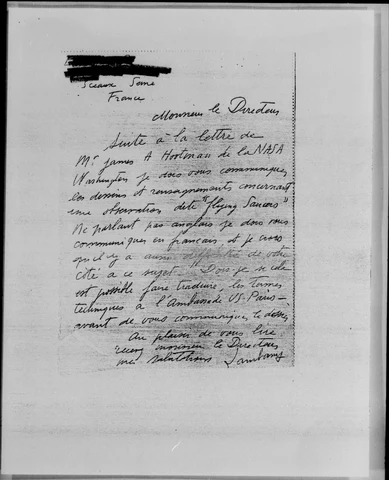 Sceaux Seine
France
Monsieur le Directeur
Suite à la lettre de
Mr James A Hootman de la NASA
Washington je dois vous communiquer
les dessins et renseignements concernant
une observation dite "flying Saucers"
Ne parlant pas anglais je dois vous
communiquer en français et je crois
qu'il y a aussi de votre
côté a ce sujet. Dois je si cela
est possible faire traduire, les termes
techniques à l'Ambassade US. Paris -
avant de vous communiquer le dessin
Au plaisir de vous lire
recevez monsieur le Directeur
mes salutations